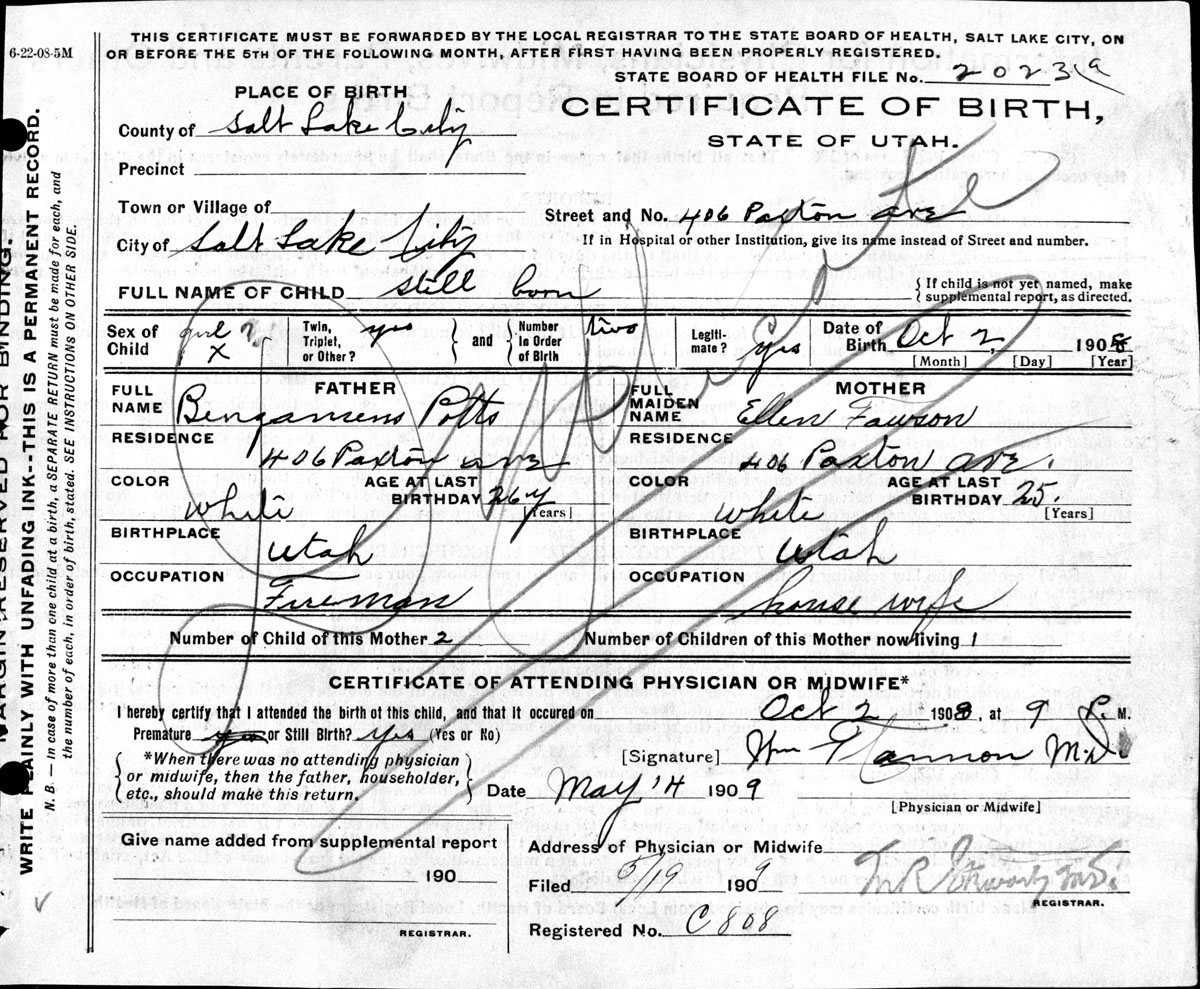 6-22-08-5M
THIS CERTIFICATE MUST BE FORWARDED BY THE LOCAL REGISTRAR TO THE STATE BOARD OF HEALTH, SALT LAKE CITY, ON
OR BEFORE THE 5TH OF THE FOLLOWING MONTH, AFTER FIRST HAVING BEEN PROPERLY REGISTERED.
STATE BOARD OF HEALTH FILE No. 2023
PLACE OF BIRTH
CERTIFICATE OF BIRTH,
STATE OF UTAH.
County of Salt Lake City
Precinct
Town or Village of
Street and No. 406 Paxton ave
City of Salt Lake City
If in Hospital or other Institution, give its name instead of Street and number.
FULL NAME OF CHILD still born
{ If child is not yet named, make
supplemental report, as directed.
Sex of Child girl ? X
Twin, Triplet, or Other? yes
and
Number In Order of Birth two
Legitimate? yes
Date of Birth Oct 2, 1908
[Month] [Day] [Year]
FATHER
FULL NAME Bengamens Potts
RESIDENCE 406 Paxton ave
COLOR White
AGE AT LAST BIRTHDAY 26 y [Years]
BIRTHPLACE Utah
OCCUPATION Fireman
MOTHER
FULL MAIDEN NAME Ellen Fawson
RESIDENCE 406 Paxton ave.
COLOR White
AGE AT LAST BIRTHDAY 25 [Years]
BIRTHPLACE Utah
OCCUPATION house wife
Number of Child of this Mother 2
Number of Children of this Mother now living 1
CERTIFICATE OF ATTENDING PHYSICIAN OR MIDWIFE*
I hereby certify that I attended the birth of this child, and that it occured on Oct 2 1908, at 9 P. M.
Premature yes or Still Birth? yes (Yes or No)
*When there was no attending physician
or midwife, then the father, householder,
etc., should make this return.
[Signature] Wm F Cannon M.D.
Date May 14 1909
[Physician or Midwife]
Give name added from supplemental report
190
REGISTRAR.
Address of Physician or Midwife
Filed 5/19 1909
REGISTRAR.
Registered No. C 808
MARGIN RESERVED FOR BINDING.
WRITE PLAINLY WITH UNFADING INK--THIS IS A PERMANENT RECORD.
N. B. — In case of more than one child at a birth, a SEPARATE RETURN must be made for each, and
the number of each, in order of birth, stated. SEE INSTRUCTIONS ON OTHER SIDE.